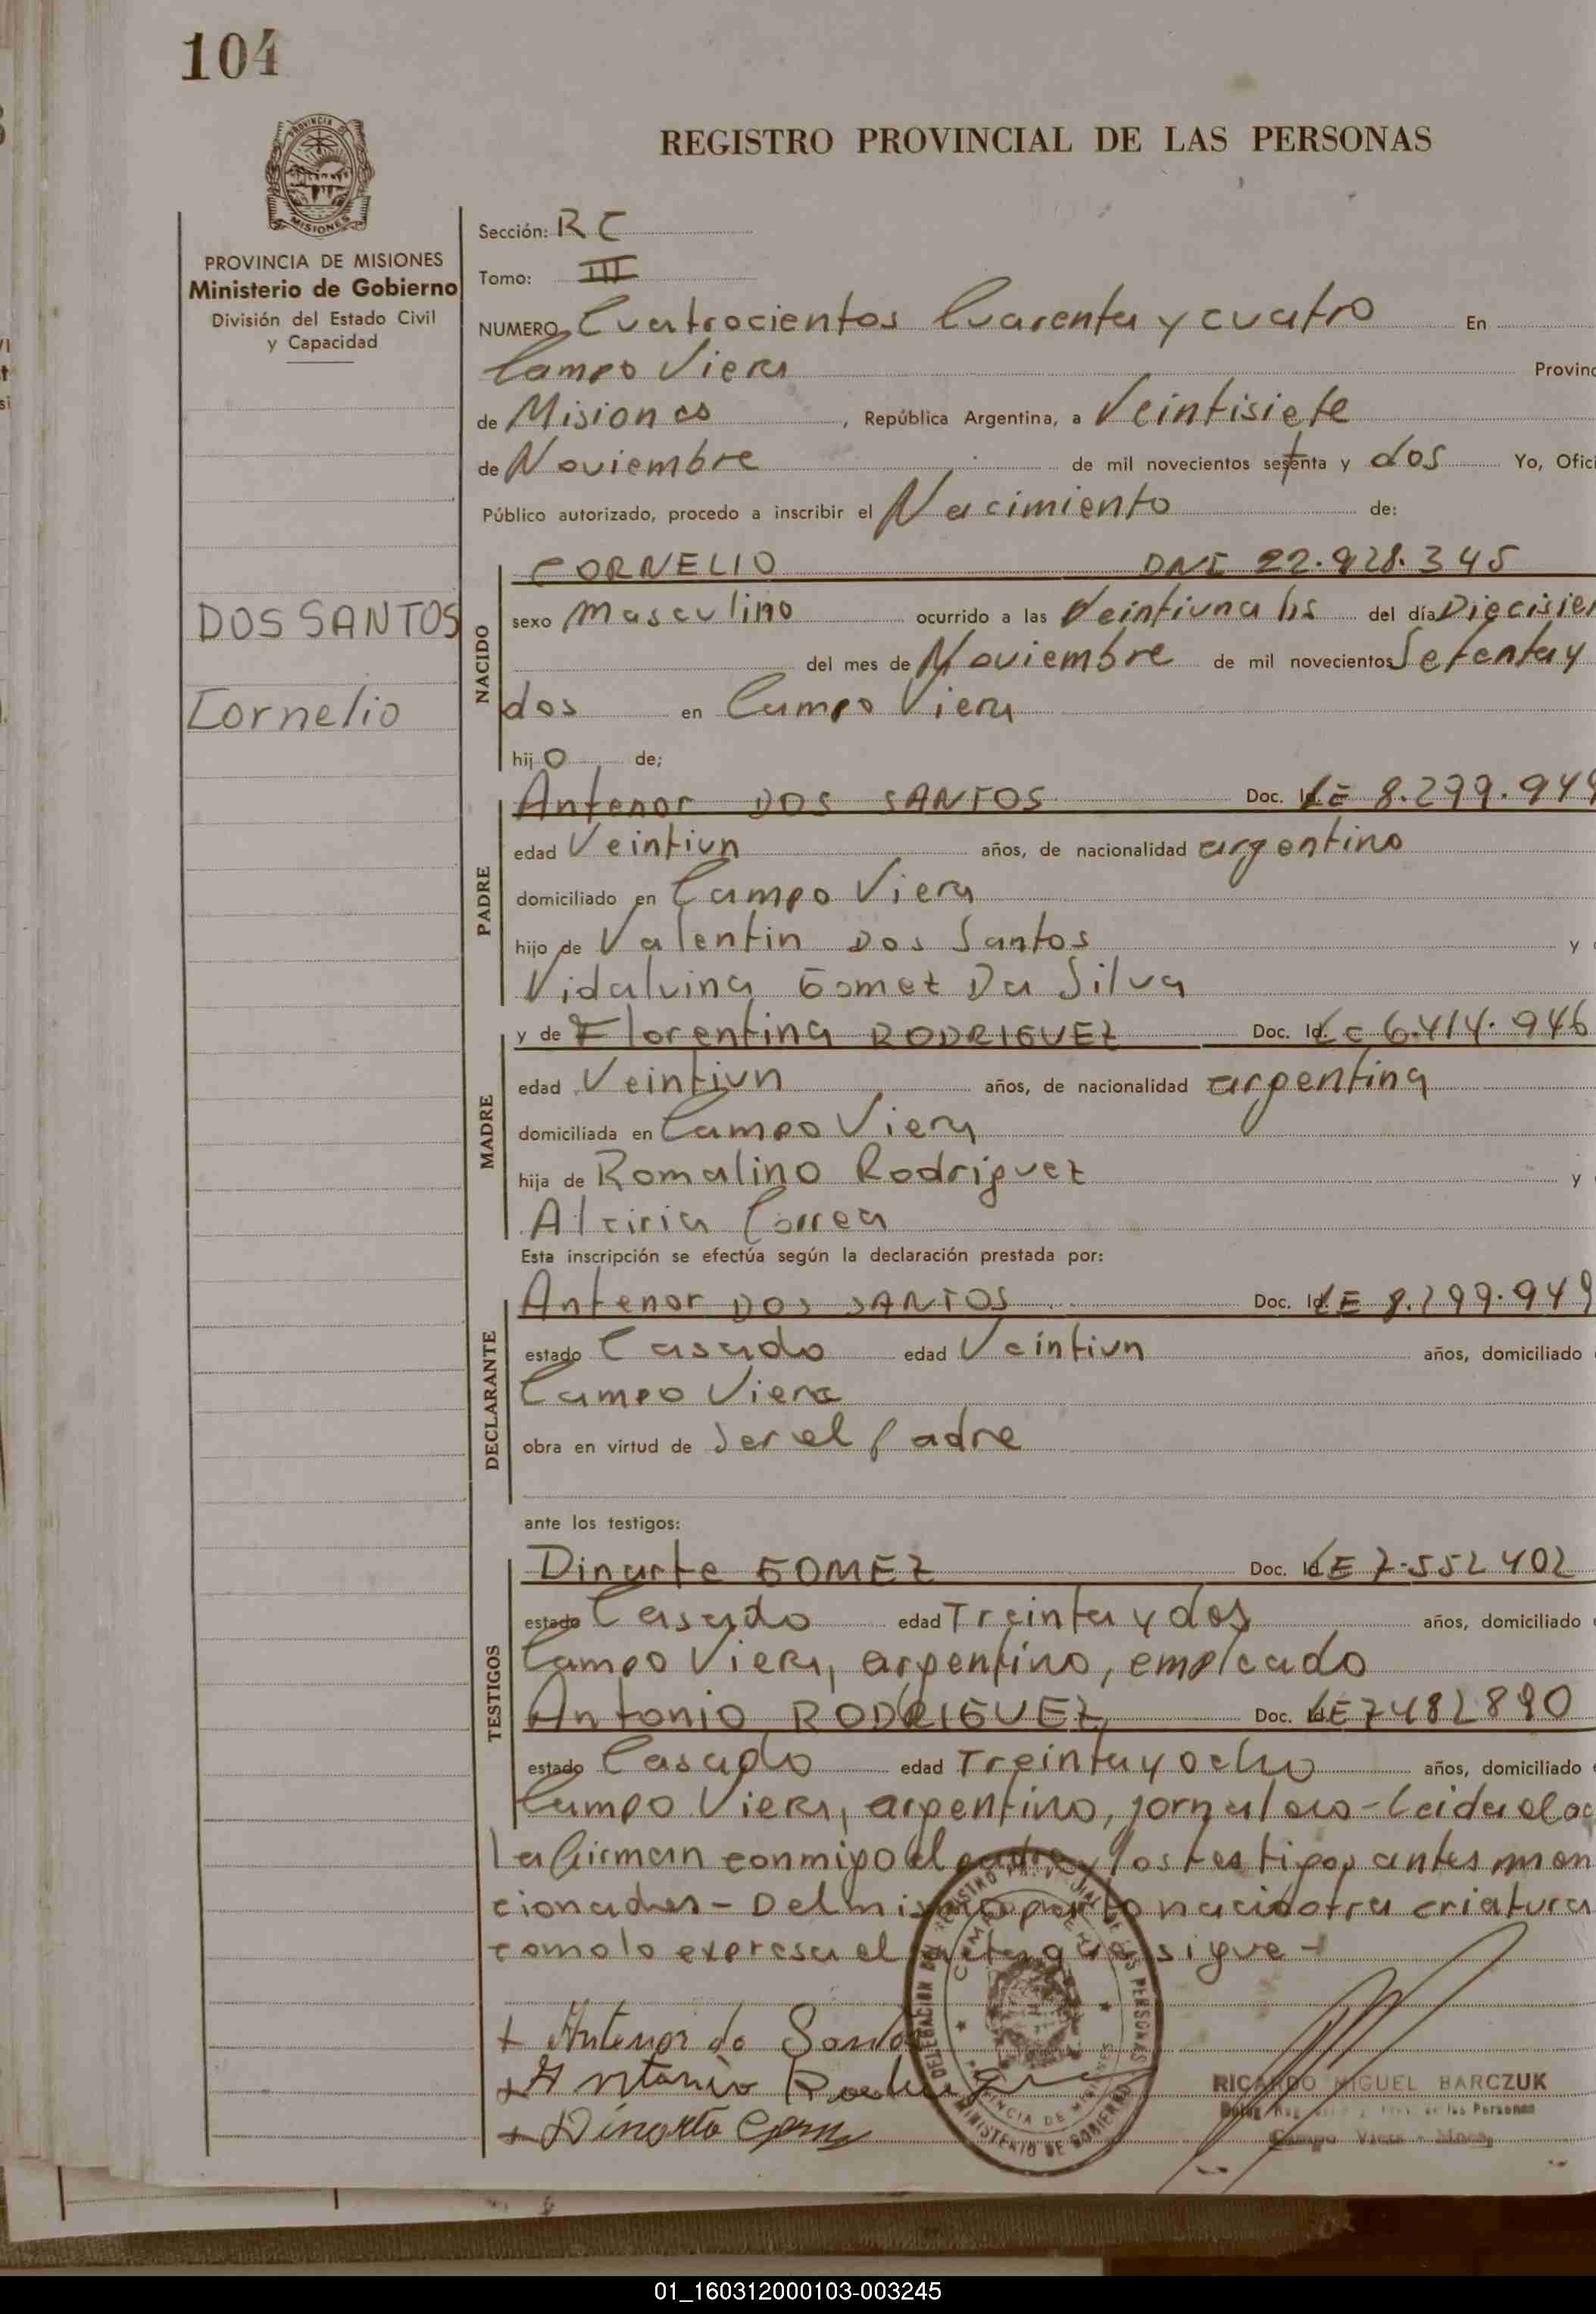 104
REGISTRO PROVINCIAL DE LAS PERSONAS
PROVINCIA DE MISIONES
Ministerio de Gobierno
División del Estado Civil
y Capacidad
DOS SANTOS
Cornelio
Sección: RC
Tomo: III
NUMERO Cuatrocientos Cuarenta y cuatro En
Campo Viera Provinc
de Misiones, República Argentina, a Veintisiete
de Noviembre de mil novecientos setenta y dos Yo, Ofici
Público autorizado, procedo a inscribir el Nacimiento de:
NACIDO
CORNELIO DNI 22.928.345
sexo Masculino ocurrido a las Veintiuna hs del día Diecisie
del mes de Noviembre de mil novecientos Setenta y
dos en Campo Viera
hijo de;
PADRE
Antenor DOS SANTOS Doc. Id. LE 8.299.949
edad Veintiun años, de nacionalidad argentino
domiciliado en Campo Viera
hijo de Valentin Dos Santos y
Vidalvina Gomez Da Silva
MADRE
y de Florentina RODRIGUEZ Doc. Id. LC 6.414.946
edad Veintiun años, de nacionalidad argentina
domiciliada en Campo Viera
hija de Romalino Rodriguez y
Alciria Correa
Esta inscripción se efectúa según la declaración prestada por:
DECLARANTE
Antenor DOS SANTOS Doc. Id. LE 8.299.949
estado Casado edad Veintiun años, domiciliado
Campo Viera
obra en virtud de Ser el Padre
ante los testigos:
TESTIGOS
Dinarte GOMEZ Doc. Id. LE 7.552 402
estado Casado edad Treinta y dos años, domiciliado
Campo Viera, argentino, empleado
Antonio RODRIGUEZ Doc. Id. LE 7482890
estado Casado edad Treinta y ocho años, domiciliado
Campo Viera, argentino, jornalero - Leida el ac
la firman conmigo el padre y los testigos antes men
cionados - Del mismo parto nacio otra criatura
como lo expresa el acta que sigue -
+ Antenor do Santos
+ Antonio Rodriguez
+ Dinarte Gomez
RICARDO MIGUEL BARCZUK
Campo Viera - Mnes.
01_160312000103-003245